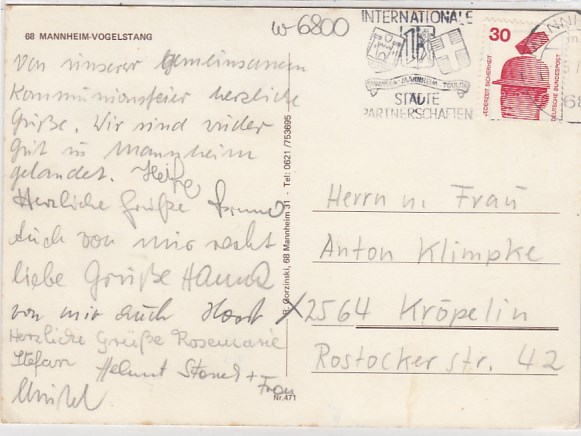 68 MANNHEIM-VOGELSTANG
w-6800
Von unserer gemeinsamen
Kommunionsfeier herzliche
Grüße. Wir sind wieder
gut in Mannheim
gelandet. Heike
Herzliche Grüße Bruno
Auch von mir recht
liebe Grüße Hanna
von mir auch Horst
Herzliche Grüße Rosemarie
Stefan Helmut + Frau
INTERNATIONALE
MANNHEIM TOULON
STÄDTE
PARTNERSCHAFTEN
30
JEDERZEIT SICHERHEIT
DEUTSCHE BUNDESPOST
Gorzinski, 68 Mannheim 31 - Tel: 0621/753695
Nr.471
Herrn u. Frau
Anton Klimpke
2564 Kröpelin
Rostocker str. 42